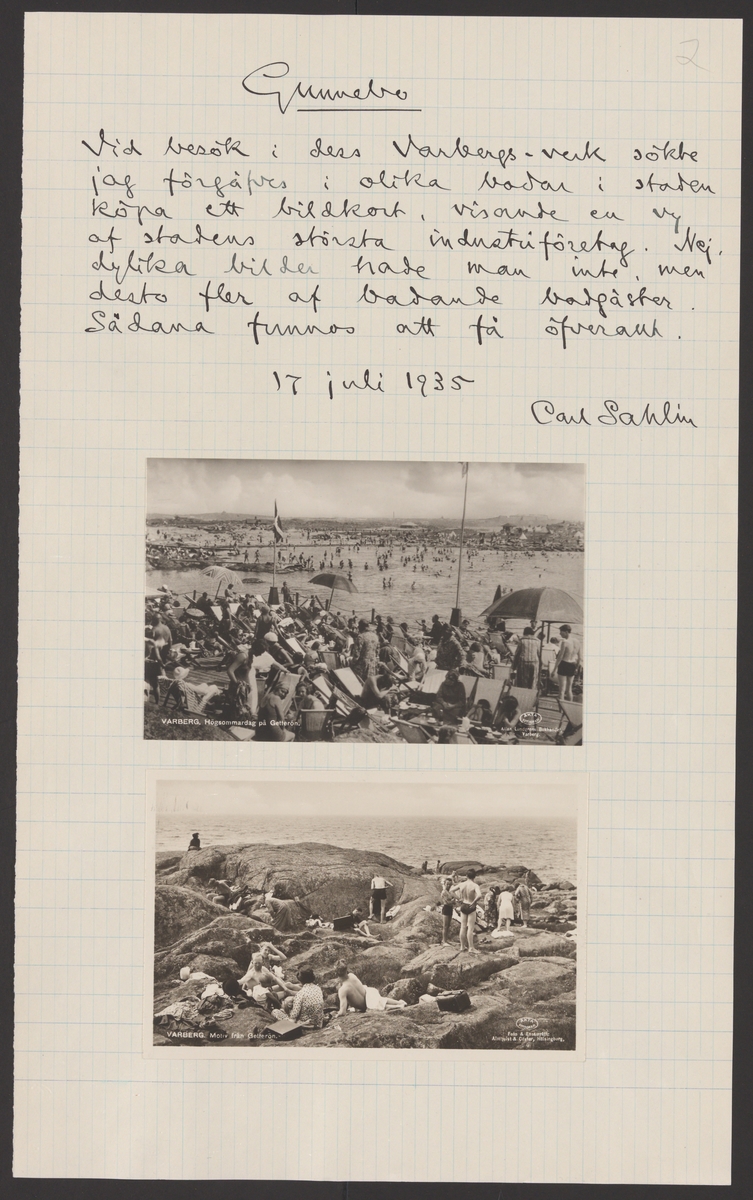 2
Gunnebo
Vid besök i dess Varbergs-verk sökte
jag förgäfves i olika bodar i staden
köpa ett bildkort, visande en vy
af stadens största industriföretag. Nej,
dylika bilder hade man inte, men
desto fler af badande badgäster.
Sådana funnos att få öfverallt.
17 juli 1935
Carl Sahlin
VARBERG. Högsommardag på Getterön.
Varberg.
VARBERG. Motiv från Getterön.
Foto & Ensamrätt:
Almquist & Cöster, Hälsingborg.